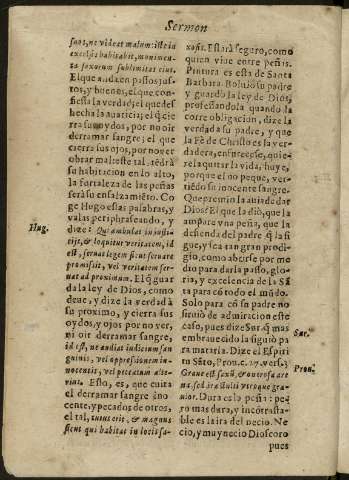 Sermon
suos, ne videat malum: iste in
excelsis habitabit, munimenta
saxorum sublimitas eius.
El que anda en passos justos,
y buenos, el que confiessa
la verdad; el que desecha
la auaricia; el q̃ cierra
sus oydos, por no oir
derramar sangre; el que
cierra sus ojos, por no ver
obrar mal; este tal, tẽdrà
su habitacion en lo alto,
la fortaleza de las peñas
serà su ensalzamiẽto. Coge
Hugo estas palabras, y
valas periphraseando, y
Hug.
dize: Qui ambulat in iustitijs,
& loquitur veritatem, id
est, seruat legem sicut seruare
promissit, vel veritatem seruat
ad proximum. El q̃ guarda
la ley de Dios, como
deue, y dize la verdad à
su proximo, y cierra sus
oydos, y ojos por no ver,
ni oir derramar sangre,
id est, ne audiat iudicium sanguinis,
vel oppressionem innocentis,
vel peccatum alterius.
Esto, es, que euita
el derramar sangre inocente,
y pecados de otros,
el tal, tutus erit, & magnus
sicut qui habitat in locis saxosis.
Estarà seguro, como
quien viue entre peñas.
Pintura es esta de Santa
Barbara. Boluiò su padre
y guardò la ley de Dios,
professandola quando la
corre obligacion, dize la
verdad a su padre, y que
la Fè de Christo es la verdadera,
enfurecese, quierela
quitar la vida, huye,
porque el no peque, vertiẽdo
su inocente sangre.
Que premio la auia de dar
Dios? El que la diò, que la
ampare vna peña, que la
defienda del padre q̃ la sigue,
y sea tan gran prodigio,
como abrirse por medio
para darla passo, gloria,
y excelencia de la Sãta
para cõ todo el mũdo.
Solo para cõ su padre no
siruiò de admiracion este
caso, pues dize Sur. q̃ mas
Sur.
embrauecido la siguiò para
matarla. Dize el Espiritu
Sãto, Prou. c. 27. vers. 3.
Prou.
Graue est saxũ, & onerosa arena,
sed ira stulti vtroque grauior.
Dura es la peña: pero
mas dura, y incontrastable
es la ira del necio. Necio,
y muy necio Dioscoro
pues